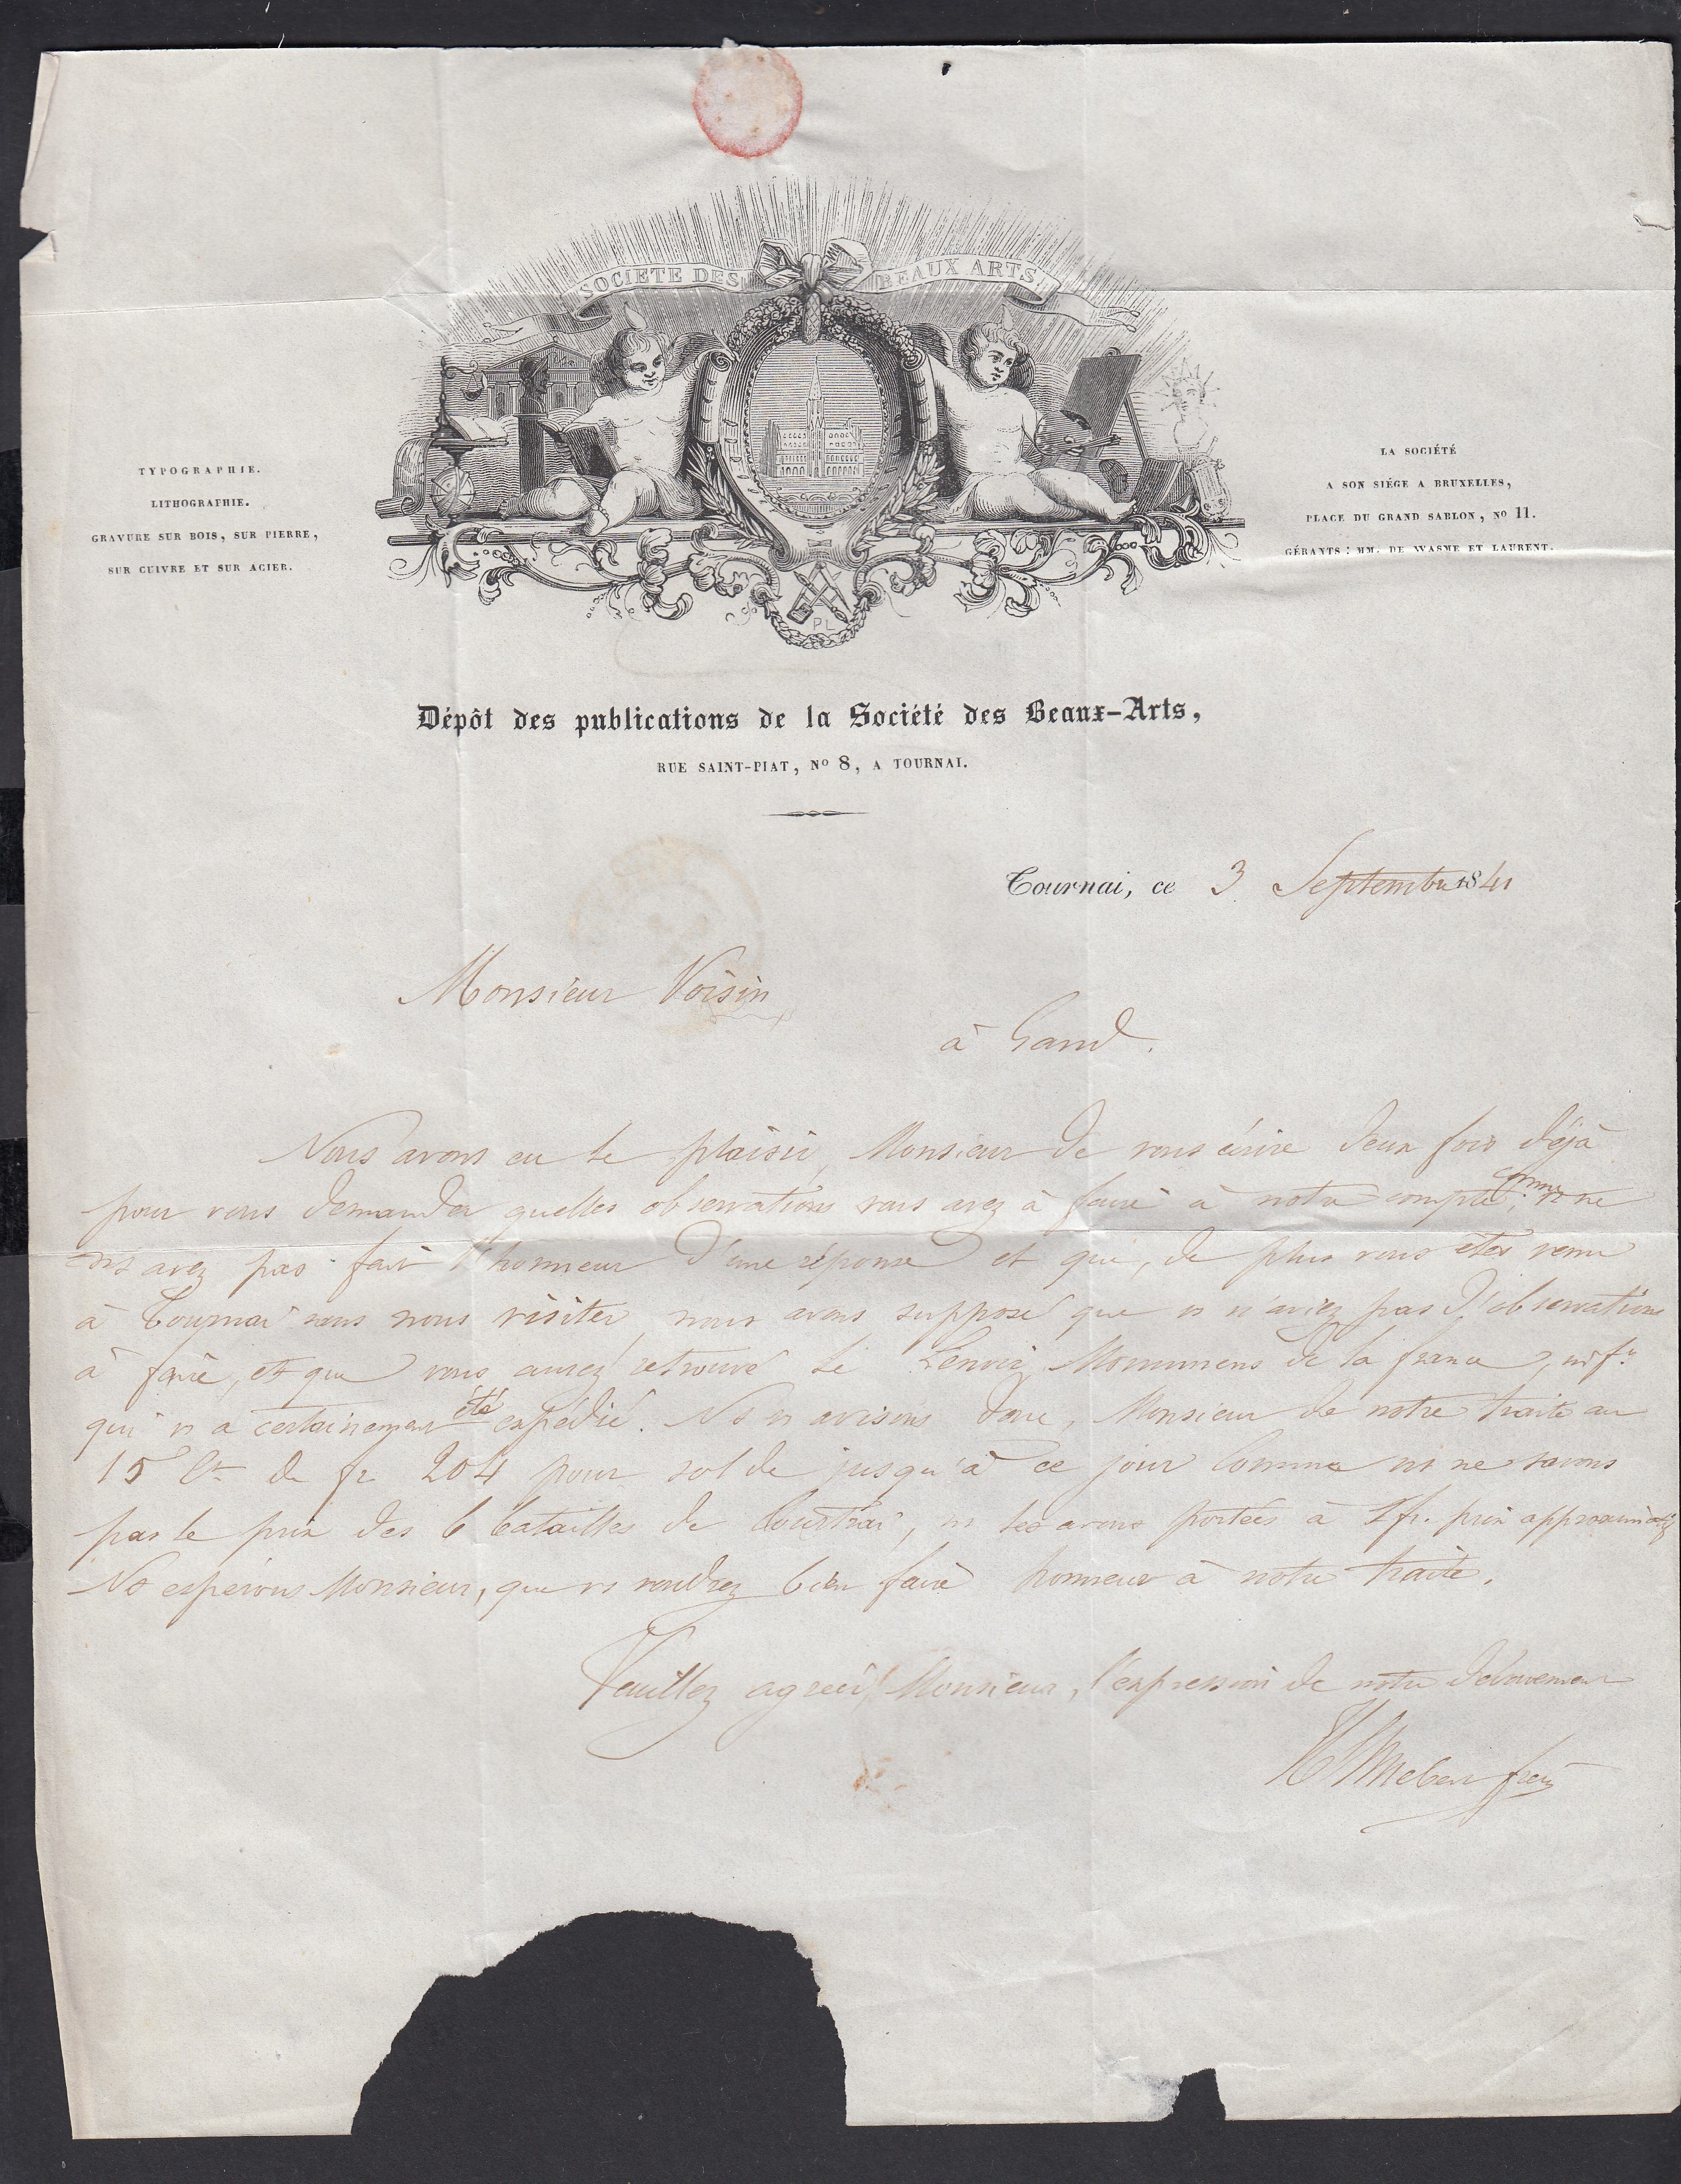 SOCIETE DES BEAUX ARTS
TYPOGRAPHIE.
LITHOGRAPHIE.
GRAVURE SUR BOIS, SUR PIERRE,
SUR CUIVRE ET SUR ACIER.
LA SOCIÉTÉ
A SON SIÉGE A BRUXELLES,
PLACE DU GRAND SABLON, No 11.
GÉRANTS : MM. DE WASME ET LAURENT.
PL
Dépôt des publications de la Société des Beaux-Arts,
RUE SAINT-PIAT, No 8, A TOURNAI.
Tournai, ce 3 Septembre 1841
Monsieur Voisin
à Gand.
Nous avons eu le plaisir, Monsieur de vous écrire deux fois déjà
pour vous demander quelles observations vous avez à faire à notre compte; comme vs ne
avez pas fait l'honneur d'une réponse et que, de plus vous êtes venu
à Tournai sans nous visiter, nous avons supposé que vs n'aviez pas d'observations
à faire, et que vous aurez retrouvé le Lenoir, Monumens de la france, inf°
qui vs a certainement été expédié. Ns vs avisons donc, Monsieur de notre traite au
15 Ct de fr 204 pour solde jusqu'à ce jour Comme ns ne savons
pas le prix des 6 batailles de Courtrai, ns les avons portées à 1 fr. prix approximatif
Ns espérons Monsieur, que vs voudrez bien faire honneur à notre traite.
Veuillez agréer, Monsieur, l'expression de notre dévouement